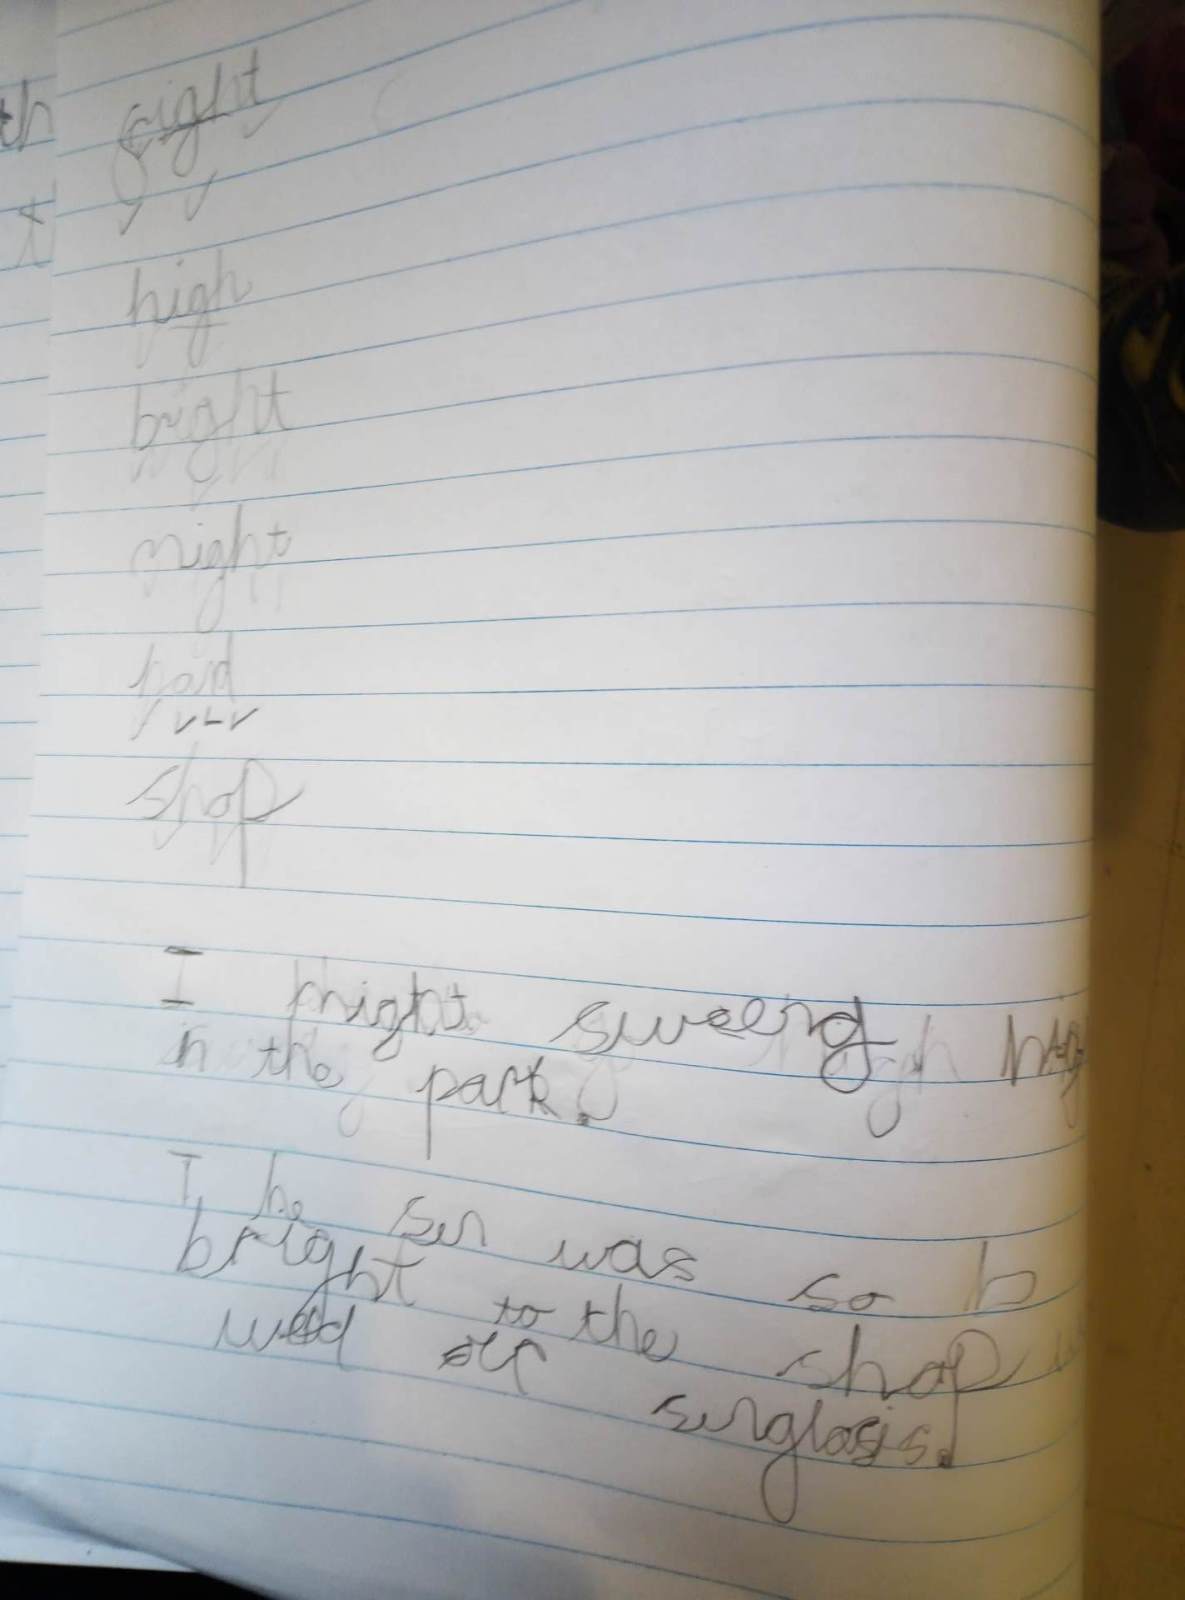 th
right
t
high
bright
might
hard
shop
I might sweeng hig
in the park.
The sun was so b
bright to the shop
wed our sunglasis.